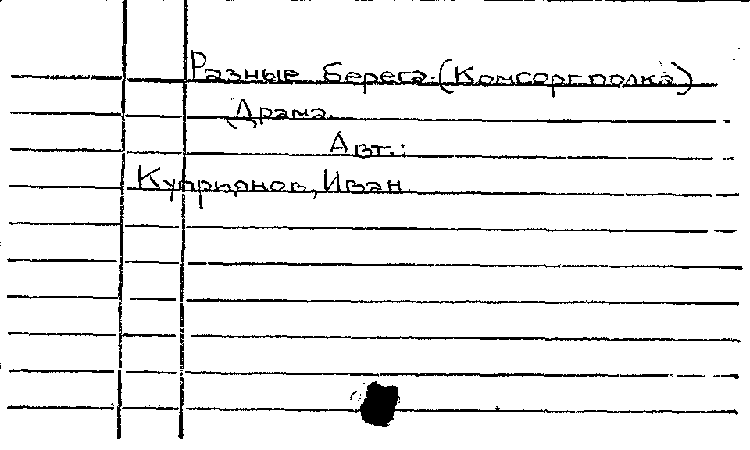 Разные берега.(Комсорг полка)
Драма.
Авт.:
Куприянов, Иван